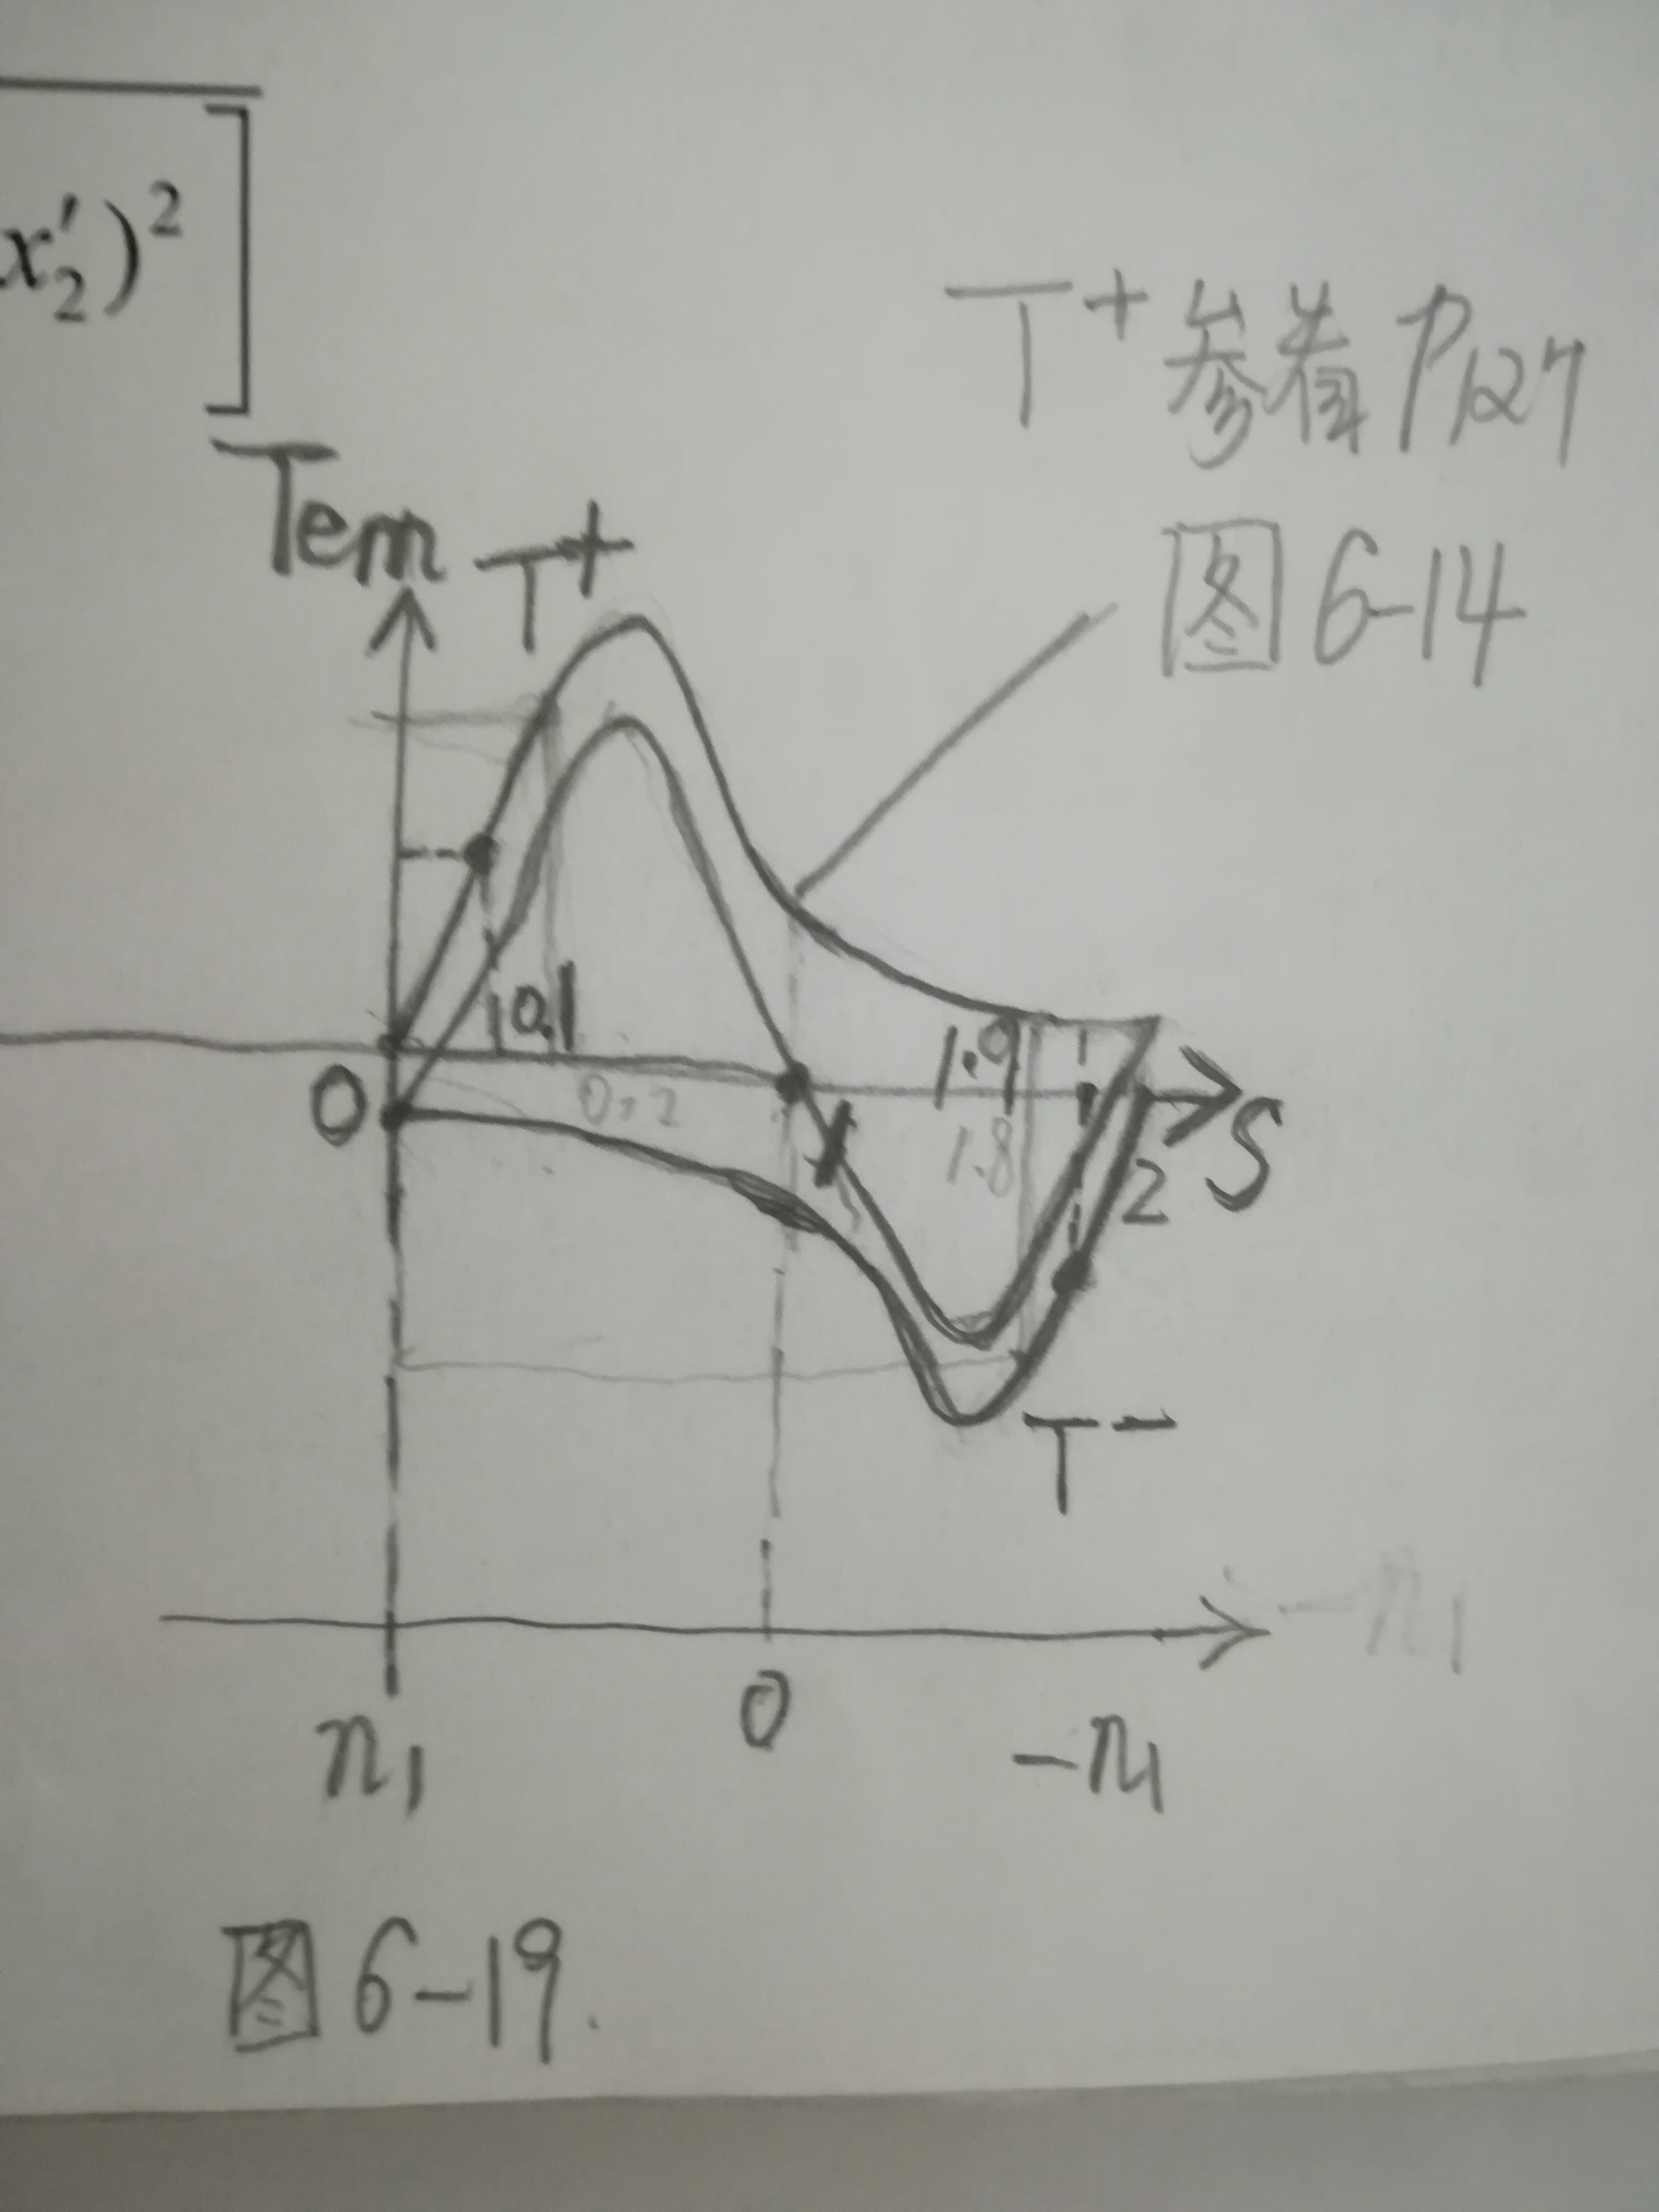 x₂′)² ]
T⁺参看P127
图6-14
Tem
T⁺
0.1
1.9
0
0.2
1
1.8
2
S
T⁻
-n₁
n₁
0
-n₁
图6-19.